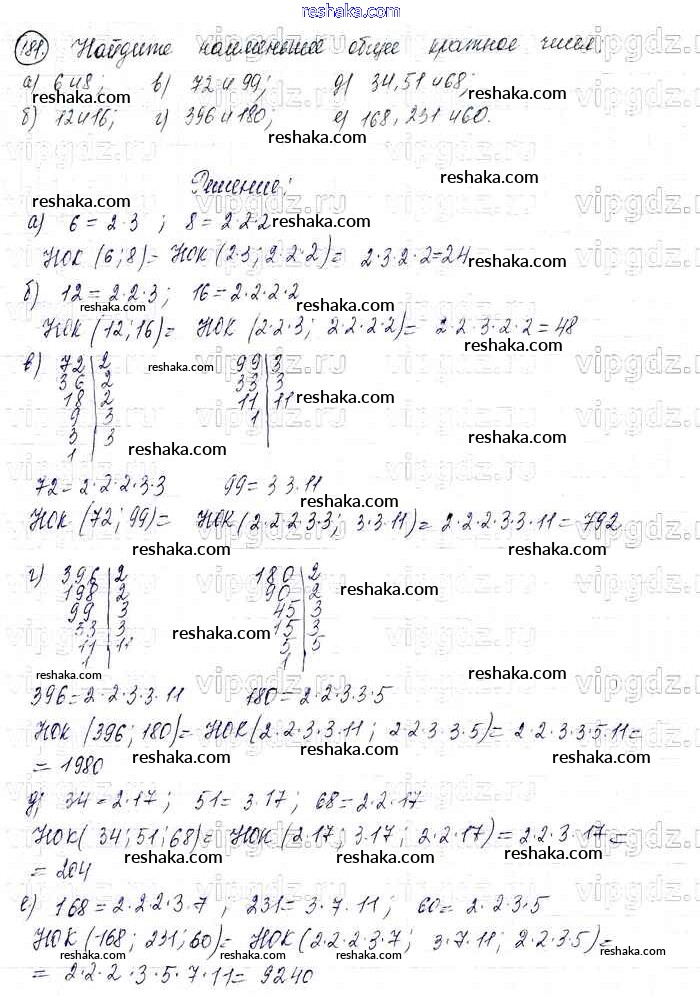 www.reshaka.com
181. Найдите наименьшее общее кратное чисел:
а) 6 и 8; в) 72 и 99; д) 34, 51 и 68;
б) 12 и 16; г) 396 и 180; е) 168, 231 и 60.
Решение:
а) 6 = 2·3 ; 8 = 2·2·2
НОК (6; 8) = НОК (2·3; 2·2·2) = 2·3·2·2 = 24
б) 12 = 2·2·3; 16 = 2·2·2·2
НОК (12; 16) = НОК (2·2·3; 2·2·2·2) = 2·2·3·2·2 = 48
в) 72 | 2 99 | 3
36 | 2 33 | 3
18 | 2 11 | 11
9 | 3 1
3 | 3
1
72 = 2·2·2·3·3 99 = 3·3·11
НОК (72; 99) = НОК (2·2·2·3·3; 3·3·11) = 2·2·2·3·3·11 = 792
г) 396 | 2 180 | 2
198 | 2 90 | 2
99 | 3 45 | 3
53 | 3 15 | 3
11 | 11 5 | 5
1 1
396 = 2·2·3·3·11 180 = 2·2·3·3·5
НОК (396; 180) = НОК (2·2·3·3·11; 2·2·3·3·5) = 2·2·3·3·5·11 =
= 1980
д) 34 = 2·17; 51 = 3·17; 68 = 2·2·17
НОК (34; 51; 68) = НОК (2·17; 3·17; 2·2·17) = 2·2·3·17 =
= 204
е) 168 = 2·2·2·3·7 ; 231 = 3·7·11; 60 = 2·2·3·5
НОК (168; 231; 60) = НОК (2·2·2·3·7; 3·7·11; 2·2·3·5) =
= 2·2·2·3·5·7·11 = 9240